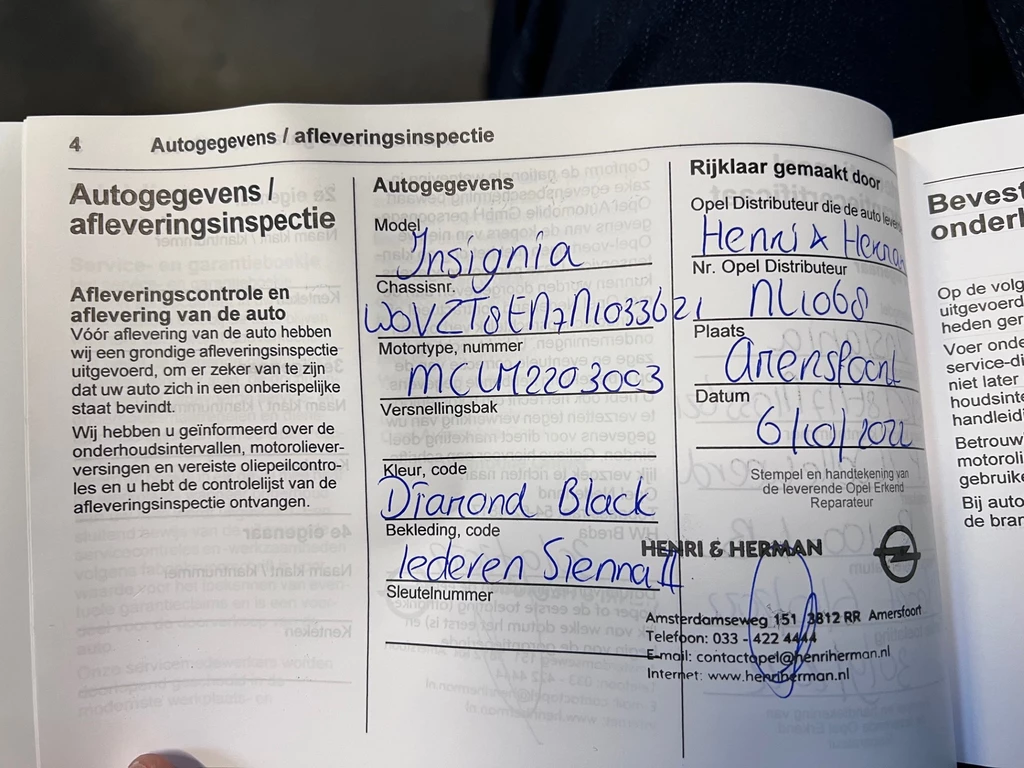 4 Autogegevens / afleveringsinspectie
Autogegevens /
afleveringsinspectie
Afleveringscontrole en
aflevering van de auto
Vóór aflevering van de auto hebben
wij een grondige afleveringsinspectie
uitgevoerd, om er zeker van te zijn
dat uw auto zich in een onberispelijke
staat bevindt.
Wij hebben u geïnformeerd over de
onderhoudsintervallen, motoroliever-
versingen en vereiste oliepeilcontro-
les en u hebt de controlelijst van de
afleveringsinspectie ontvangen.
Autogegevens
Model
Insignia
Chassisnr.
W0VZT8EN7N1033621
Motortype, nummer
MCLM2203003
Versnellingsbak
Kleur, code
Diamond Black
Bekleding, code
lederen Sienna II
Sleutelnummer
Rijklaar gemaakt door
Opel Distributeur die de auto
Henri &
Nr. Opel Distributeur
NL1068
Plaats
Amersfoort
Datum
6/10/2022
Stempel en handtekening van
de leverende Opel Erkend
Reparateur
HENRI & HERMAN
Amsterdamseweg 151 3812 RR Amersfoort
Telefoon: 033 - 422 4444
E-mail: contactopel@henriherman.nl
Internet: www.henriherman.nl
Op de
uitgevoerd
heden
Voer
niet later
Bij
de